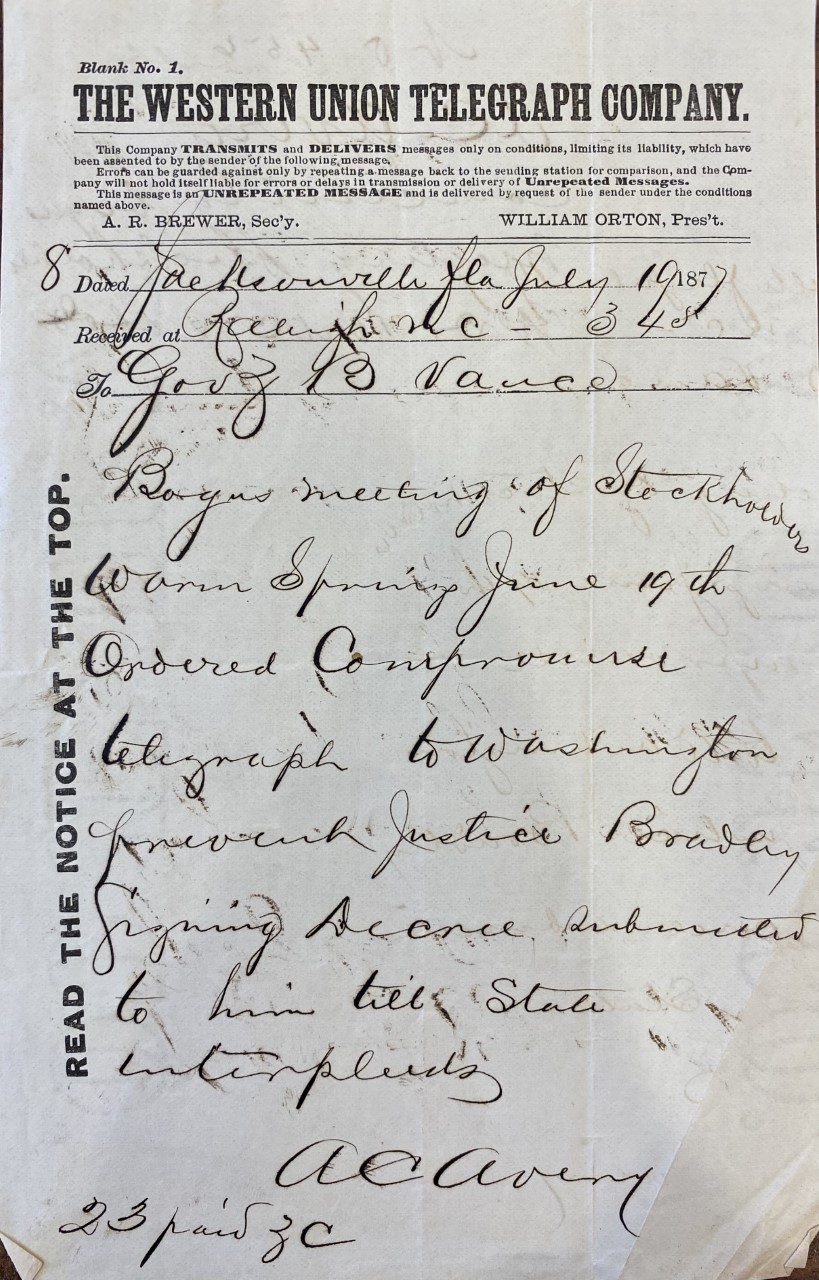 Blank No. 1.
THE WESTERN UNION TELEGRAPH COMPANY.
This Company TRANSMITS and DELIVERS messages only on conditions, limiting its liability, which have
been assented to by the sender of the following message.
Errors can be guarded against only by repeating a message back to the sending station for comparison, and the Com-
pany will not hold itself liable for errors or delays in transmission or delivery of Unrepeated Messages.
This message is an UNREPEATED MESSAGE and is delivered by request of the sender under the conditions
named above.
A. R. BREWER, Sec'y. WILLIAM ORTON, Pres't.
8 Dated Jacksonville fla July 19 1877
Received at Raleigh nc - 3 48
To Gov Z B Vance
READ THE NOTICE AT THE TOP.
Bogus meeting of Stockholders
Warm Springs June 19th
Ordered Compromise
telegraph to Washington
prevent Justice Bradley
signing Decree submitted
to him till State
interpleads
A C Avery
23 paid